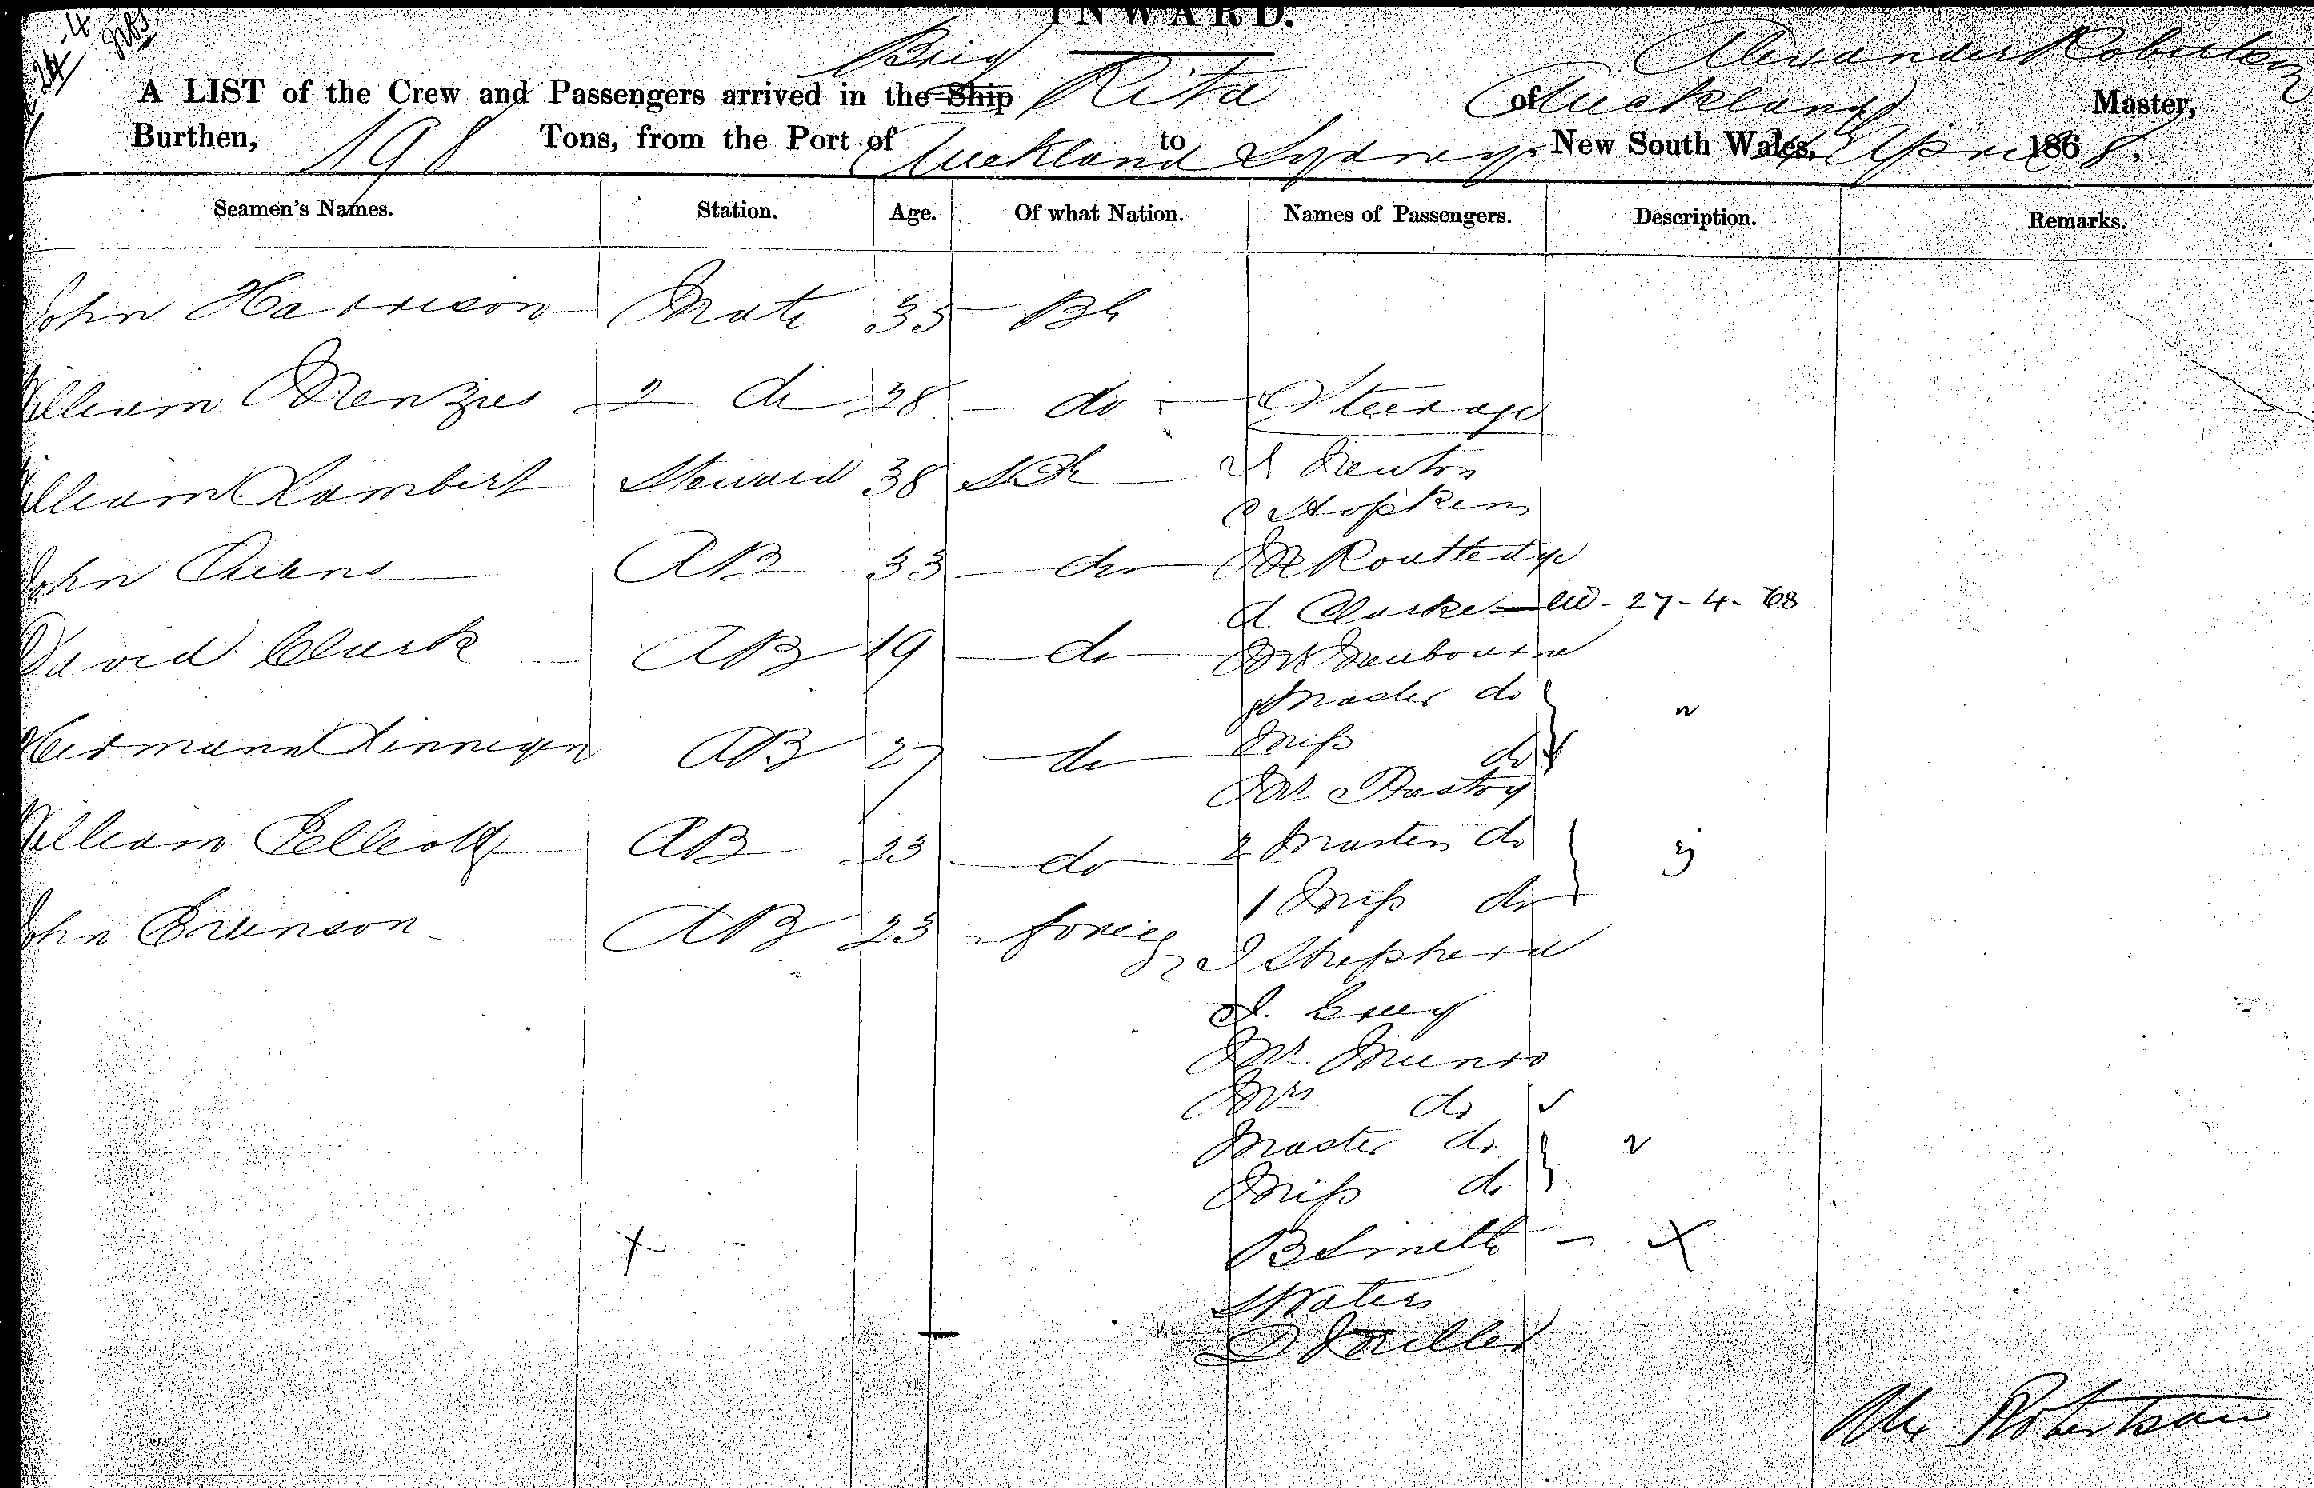 INWARD.
Brig Alexander Robertson
A LIST of the Crew and Passengers arrived in the Ship Rita of Auckland Master,
Burthen, 198 Tons, from the Port of Auckland to Sydney New South Wales, April 1868.
Seamen's Names. Station. Age. Of what Nation. Names of Passengers. Description. Remarks.
John Harrison Mate 35 Bh
William Menzies 2 do 28 do Steerage
William Lambert Steward 38 Newton
Hopkins
John 33 do Routledge
Clarke 27-4-68
David Clark AB 19 do
Master do
Hermann AB 27 do Miss do
Mr
William Elliott AB 23 do 2 Masters do 3
1 Miss do
John AB 23 foreign J Shepherd
J. Grey
Mr Munro
Mrs do
Master do 2
Miss do
B Smith x
Waters
Miller
Alex Robertson